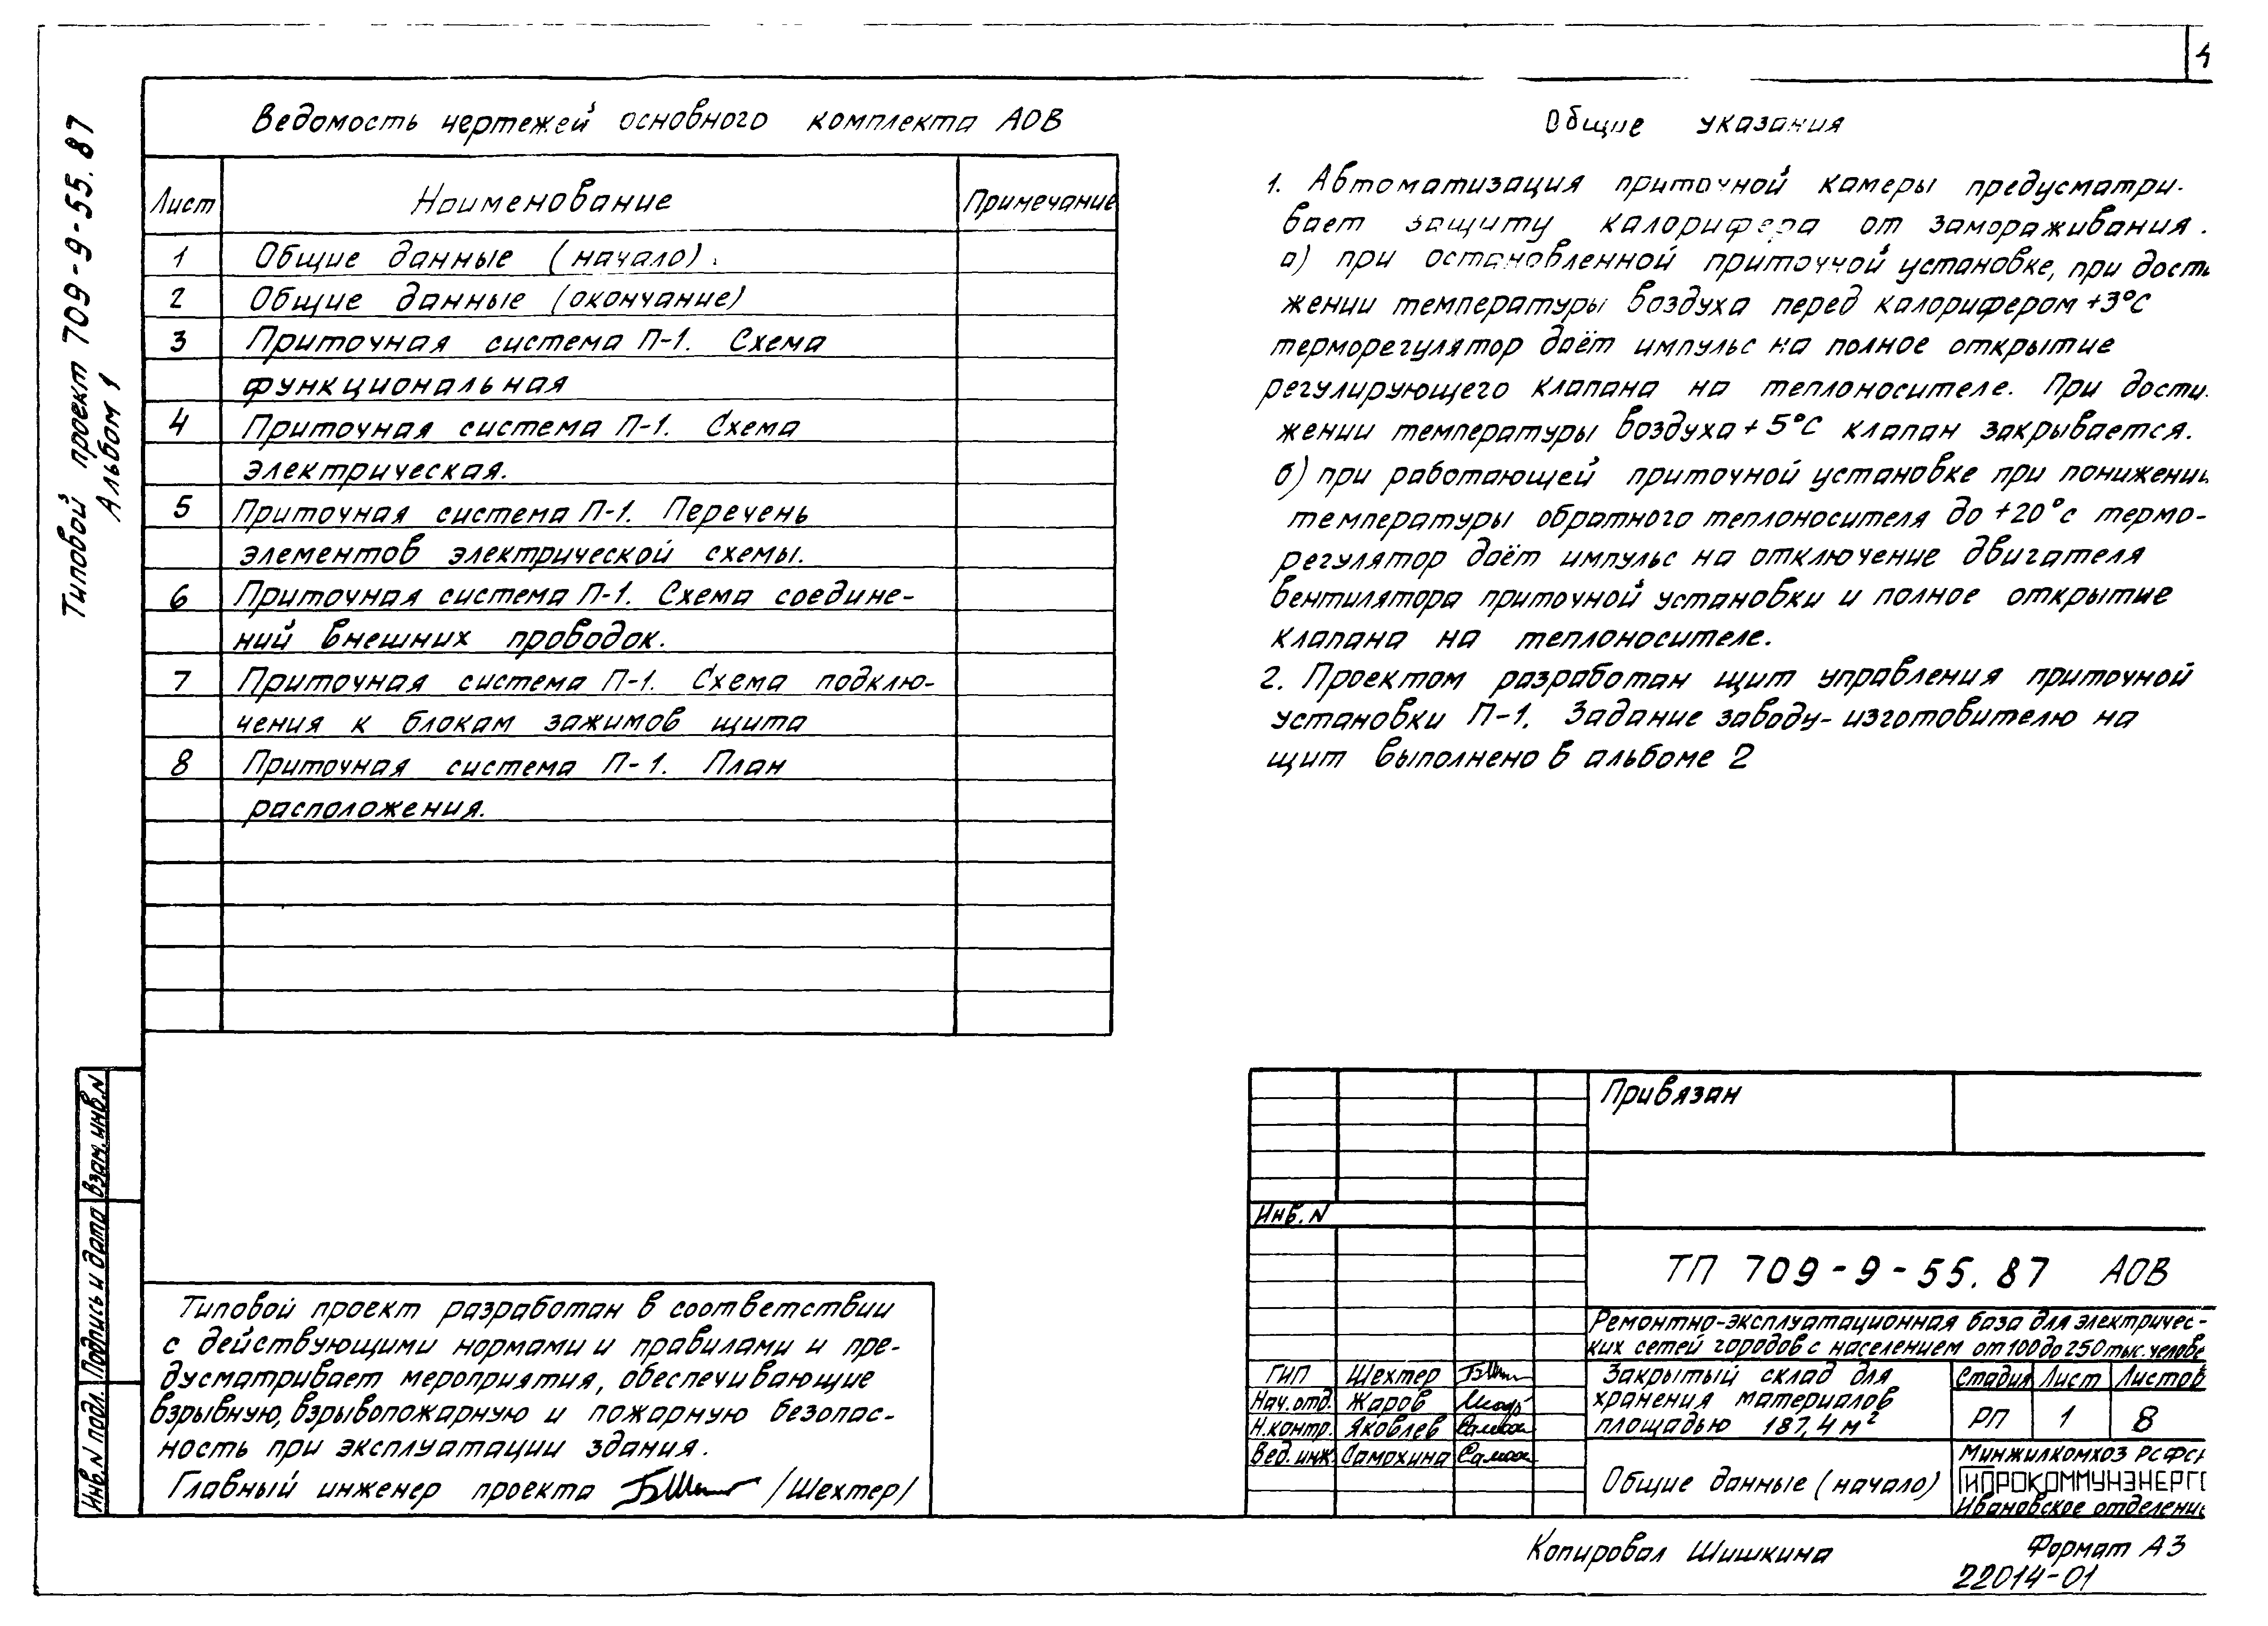 4
Типовой проект 709-9-55.87
Альбом 1
Ведомость чертежей основного комплекта АОВ
Лист Наименование Примечание
1 Общие данные (начало).
2 Общие данные (окончание)
3 Приточная система П-1. Схема
функциональная
4 Приточная система П-1. Схема
электрическая.
5 Приточная система П-1. Перечень
элементов электрической схемы.
6 Приточная система П-1. Схема соедине-
ний внешних проводок.
7 Приточная система П-1. Схема подклю-
чения к блокам зажимов щита
8 Приточная система П-1. План
расположения.
Общие указания
1. Автоматизация приточной камеры предусматри-
вает защиту калорифера от замораживания.
а) при остановленной приточной установке, при дости
жении температуры воздуха перед калорифером +3°С
терморегулятор даёт импульс на полное открытие
регулирующего клапана на теплоносителе. При дости-
жении температуры воздуха +5°С клапан закрывается.
б) при работающей приточной установке при понижении
температуры обратного теплоносителя до +20°с термо-
регулятор даёт импульс на отключение двигателя
вентилятора приточной установки и полное открытие
клапана на теплоносителе.
2. Проектом разработан щит управления приточной
установки П-1. Задание заводу-изготовителю на
щит выполнено в альбоме 2
Взам.инв.N
Подпись и дата
Инв.N подл.
Типовой проект разработан в соответствии
с действующими нормами и правилами и пре-
дусматривает мероприятия, обеспечивающие
взрывную, взрывопожарную и пожарную безопас-
ность при эксплуатации здания.
Главный инженер проекта /Шехтер/
Привязан
Инв.N
ТП 709-9-55.87 АОВ
Ремонтно-эксплуатационная база для электричес-
ких сетей городов с населением от 100 до 250 тыс. челове
ГИП Шехтер
Нач.отд. Жаров
Н.контр. Яковлев
Вед.инж. Самохина
Закрытый склад для
хранения материалов
площадью 187,4 м²
Стадия Лист Листов
РП 1 8
Общие данные (начало)
Минжилкомхоз РСФСР
ГИПРОКОММУНЭНЕРГО
Ивановское отделение
Копировал Шишкина
Формат А3
22014-01